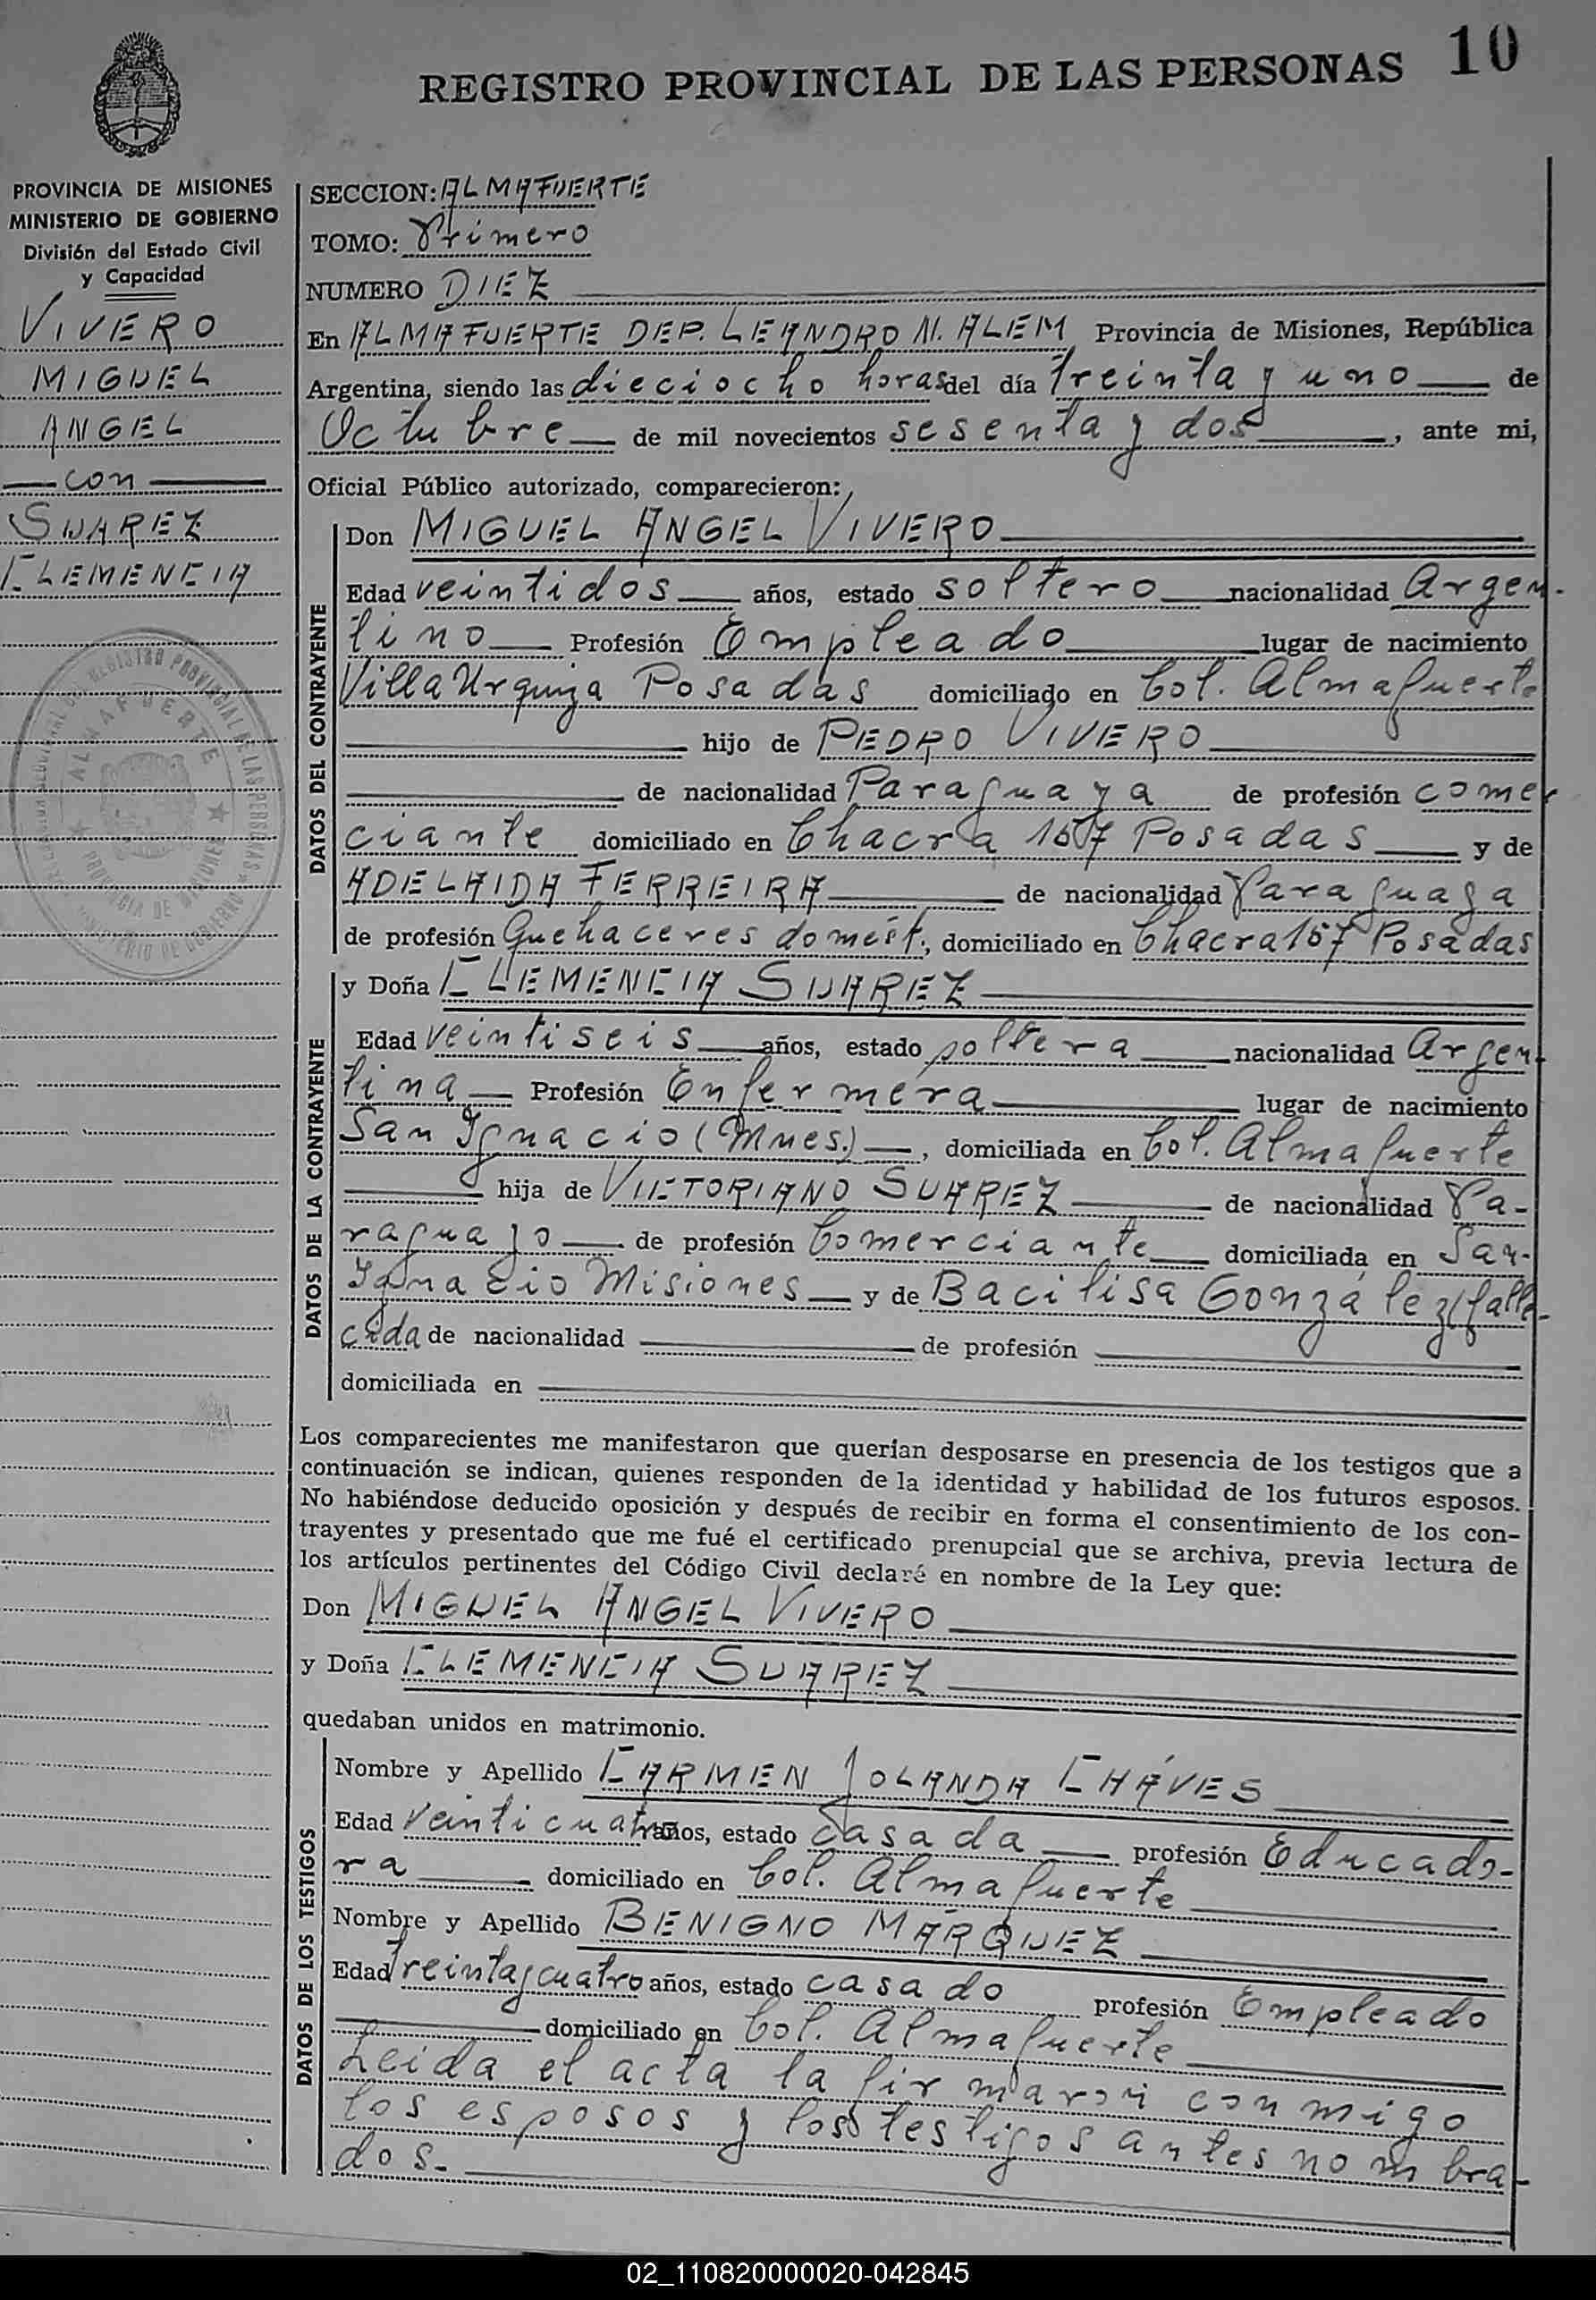 REGISTRO PROVINCIAL DE LAS PERSONAS 10
PROVINCIA DE MISIONES
MINISTERIO DE GOBIERNO
División del Estado Civil
y Capacidad
VIVERO
MIGUEL
ANGEL
con
SUAREZ
CLEMENCIA
ALMAFUERTE
SECCION: ALMAFUERTE
TOMO: Primero
NUMERO DIEZ
En ALMAFUERTE DEP. LEANDRO N. ALEM Provincia de Misiones, República
Argentina, siendo las dieciocho horas del día treinta y uno de
Octubre de mil novecientos sesenta y dos, ante mi,
Oficial Público autorizado, comparecieron:
DATOS DEL CONTRAYENTE
Don MIGUEL ANGEL VIVERO
Edad veintidos años, estado soltero nacionalidad Argen-
tino Profesión Empleado lugar de nacimiento
Villa Urquiza Posadas domiciliado en Col. Almafuerte
hijo de PEDRO VIVERO
de nacionalidad Paraguaya de profesión comer
ciante domiciliado en Chacra 157 Posadas y de
ADELAIDA FERREIRA de nacionalidad Paraguaya
de profesión Quehaceres domést., domiciliado en Chacra 157 Posadas
DATOS DE LA CONTRAYENTE
y Doña CLEMENCIA SUAREZ
Edad veintiseis años, estado soltera nacionalidad Argen-
tina Profesión Enfermera lugar de nacimiento
San Ignacio (Mnes.), domiciliada en Col. Almafuerte
hija de VICTORIANO SUAREZ de nacionalidad Pa-
raguayo de profesión Comerciante domiciliada en San-
Ignacio Misiones y de Bacilisa González (falle-
cida de nacionalidad de profesión
domiciliada en
Los comparecientes me manifestaron que querían desposarse en presencia de los testigos que a
continuación se indican, quienes responden de la identidad y habilidad de los futuros esposos.
No habiéndose deducido oposición y después de recibir en forma el consentimiento de los con-
trayentes y presentado que me fué el certificado prenupcial que se archiva, previa lectura de
los artículos pertinentes del Código Civil declaré en nombre de la Ley que:
Don MIGUEL ANGEL VIVERO
y Doña CLEMENCIA SUAREZ
quedaban unidos en matrimonio.
DATOS DE LOS TESTIGOS
Nombre y Apellido CARMEN JOLANDA CHÁVES
Edad veinticuatro años, estado casada profesión Educado-
ra domiciliado en Col. Almafuerte
Nombre y Apellido BENIGNO MÁRQUEZ
Edad treinta y cuatro años, estado casado profesión Empleado
domiciliado en Col. Almafuerte
Leida el acta la firmaron conmigo
los esposos y los testigos antes nombra-
dos.
02_110820000020-042845